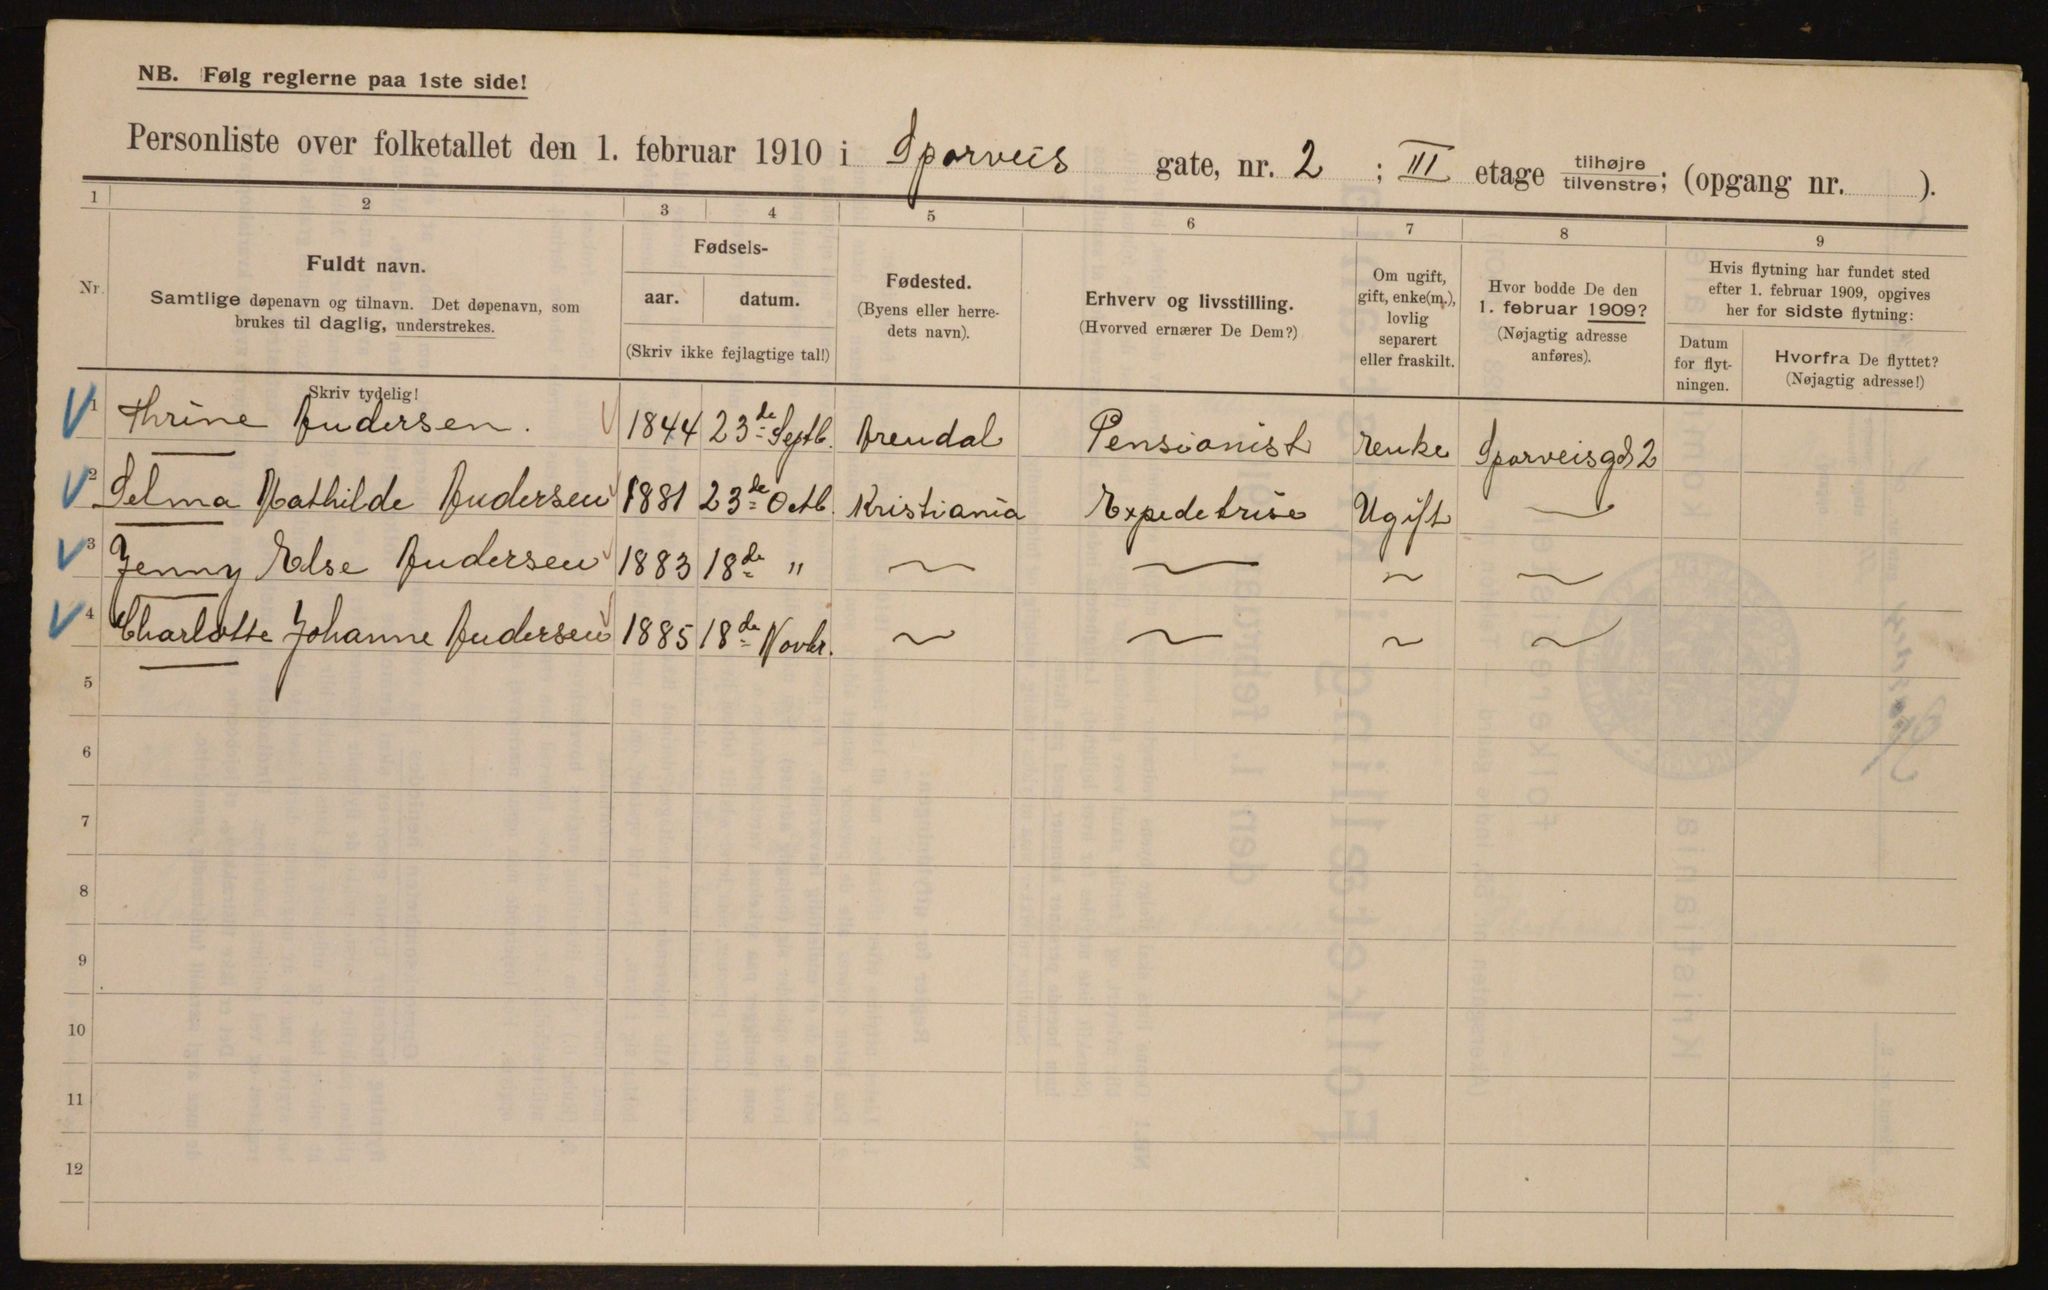 NB. Følg reglerne paa 1ste side!
Personliste over folketallet den 1. februar 1910 i Sporveis gate, nr. 2 ; III etage tilhøjre tilvenstre; (opgang nr. ).
1 2 3 4 5 6 7 8 9
Nr. Fuldt navn. Samtlige døpenavn og tilnavn. Det døpenavn, som brukes til daglig, understrekes.
Skriv tydelig!
Fødsels-
aar. datum.
(Skriv ikke fejlagtige tal!)
Fødested. (Byens eller herredets navn).
Erhverv og livsstilling. (Hvorved ernærer De Dem?)
Om ugift, gift, enke(m.), lovlig separert eller fraskilt.
Hvor bodde De den 1. februar 1909? (Nøjagtig adresse anføres).
Hvis flytning har fundet sted efter 1. februar 1909, opgives her for sidste flytning:
Datum for flytningen.
Hvorfra De flyttet? (Nøjagtig adresse!)
1 Thrine Andersen. 1844 23de Septb. Arendal Pensionist Enke Sporveisgd 2
2 Selma Mathilde Andersen 1881 23de Octb. Kristiania Expedetrise Ugift —
3 Jenny Else Andersen 1883 18de " — — — —
4 Charlotte Johanne Andersen 1885 18de Novbr. — — — —
5
6
7
8
9
10
11
12